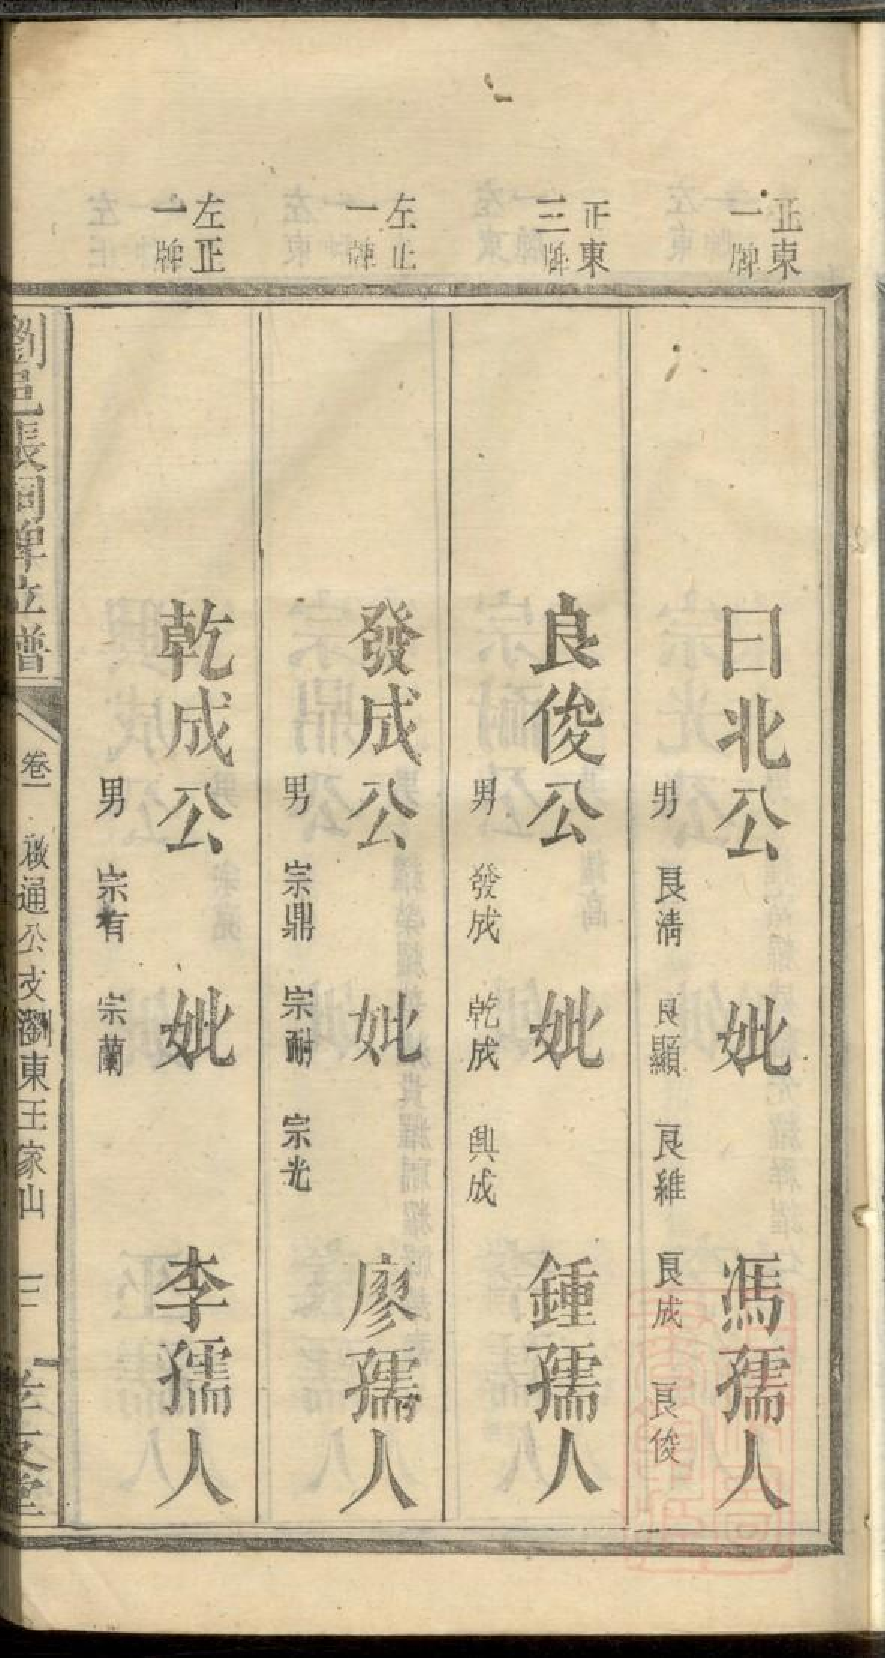 正東
一牌
曰北公 妣 馮孺人
男 良清 良顯 良維 良成 良俊
正東
三牌
良俊公 妣 鍾孺人
男 發成 乾成 興成
左正
一牌
發成公 妣 廖孺人
男 宗鼎 宗耐 宗光
左正
一牌
乾成公 妣 李孺人
男 宗有 宗蘭
瀏邑張祠牌位譜 卷一 啟通公支瀏東王家山 三 孝友堂